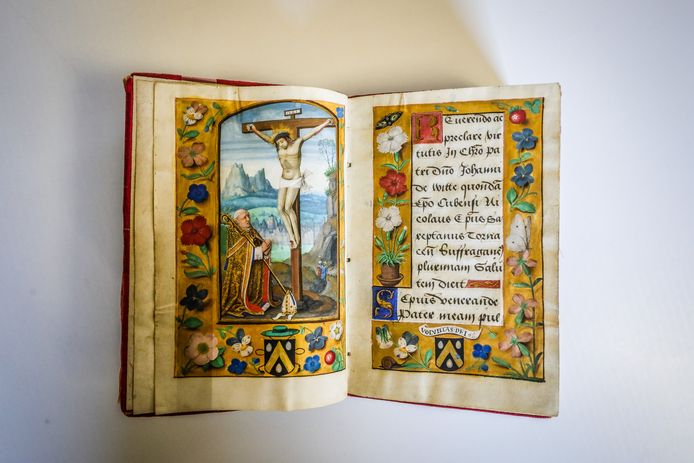 Reverendo ac
preclare vir
tutis In Chro pa
tri dno Johanni
de witte quonda
Epo Cubensi Ni
colaus Epus Sa
reptanus Torna
cen Suffragane
plurimam Salu
tem dicit
Sepius venerande
Pater meam pue
VOLVNTAS·DEI